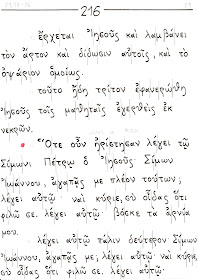 216
ἔρχεται Ἰησοῦς καὶ λαμβάνει
τὸν ἄρτον καὶ δίδωσιν αὐτοῖς, καὶ τὸ
ὀψάριον ὁμοίως.
τοῦτο ἤδη τρίτον ἐφανερώθη
Ἰησοῦς τοῖς μαθηταῖς ἐγερθεὶς ἐκ
νεκρῶν.
Ὅτε οὖν ἠρίστησαν λέγει τῷ
Σίμωνι Πέτρῳ ὁ Ἰησοῦς· Σίμων
Ἰωάννου, ἀγαπᾷς με πλέον τούτων;
λέγει αὐτῷ· ναὶ κύριε, σὺ οἶδας ὅτι
φιλῶ σε. λέγει αὐτῷ· βόσκε τὰ ἀρνία
μου.
λέγει αὐτῷ πάλιν δεύτερον· Σίμων
Ἰωάννου, ἀγαπᾷς με; λέγει αὐτῷ· ναὶ κύριε,
σὺ οἶδας ὅτι φιλῶ σε. λέγει αὐτῷ·